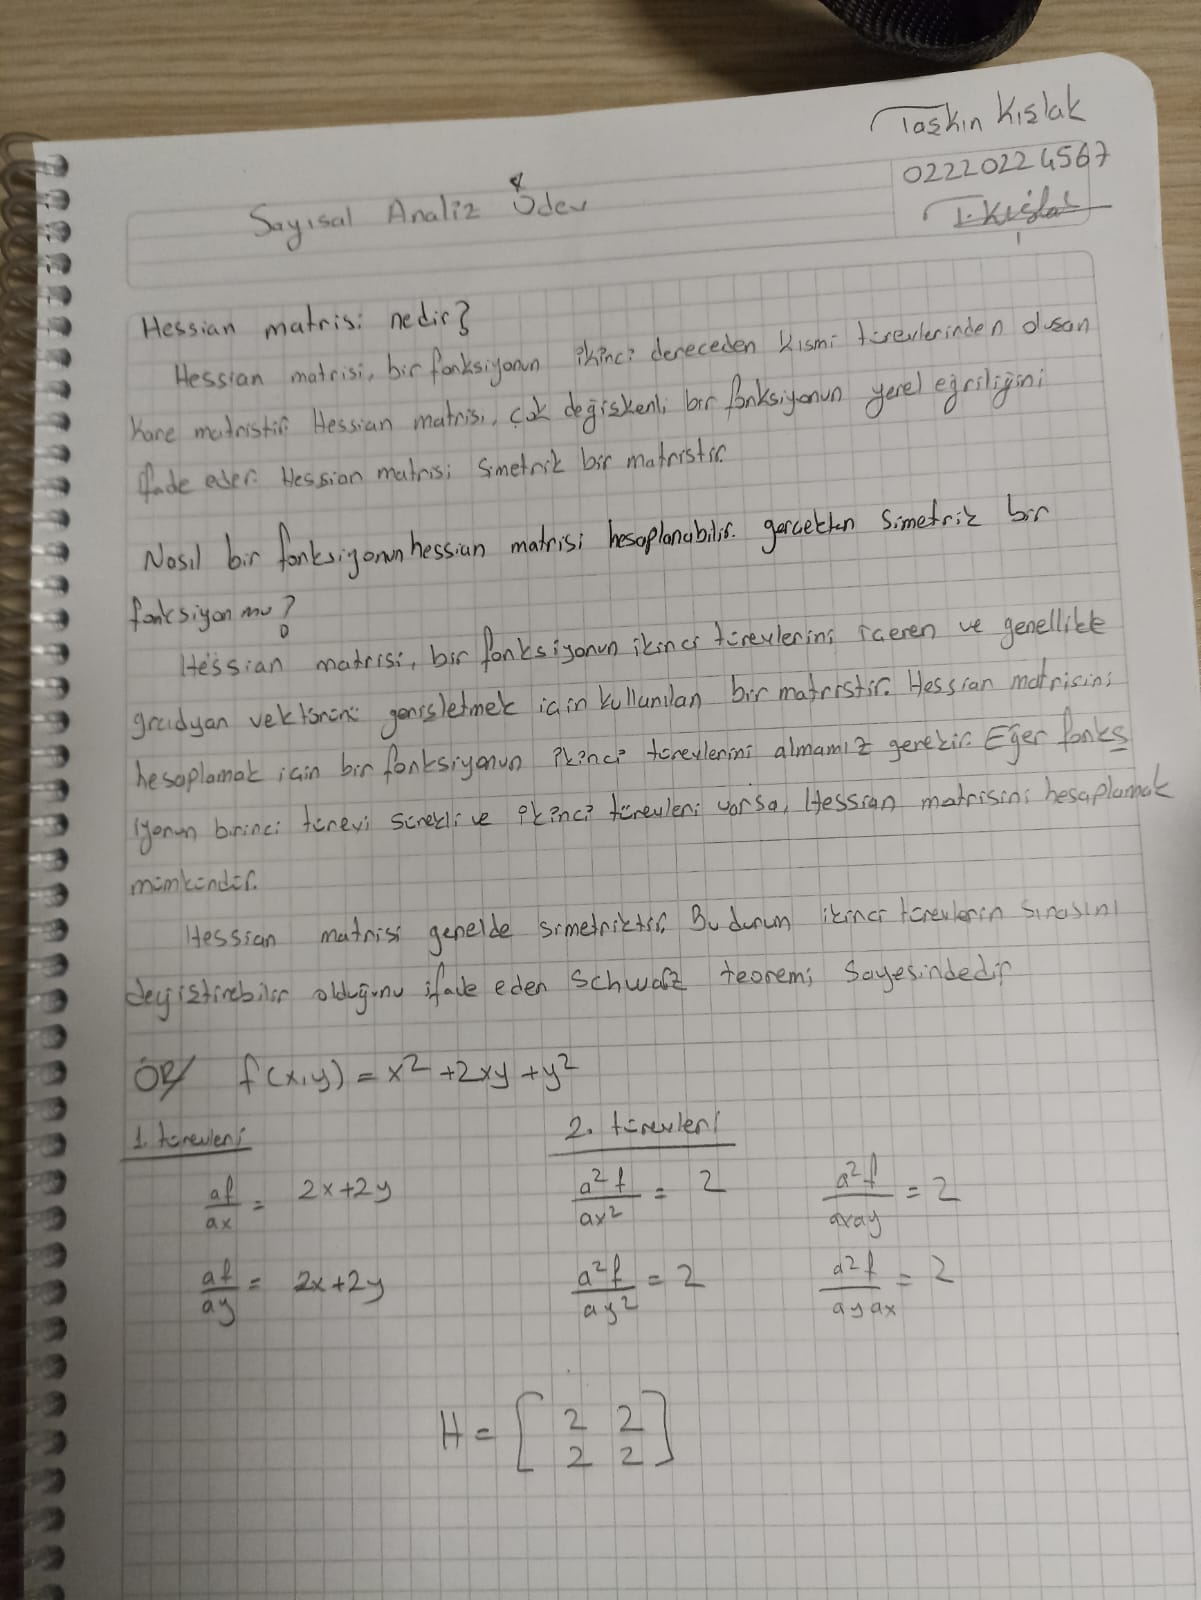 Taşkın Kışlak
02220224567
T. Kışlak
Sayısal Analiz Ödev
Hessian matrisi nedir?
Hessian matrisi, bir fonksiyonun ikinci dereceden kısmi türevlerinden oluşan
kare matristir. Hessian matrisi, çok değişkenli bir fonksiyonun yerel eğriliğini
ifade eder. Hessian matrisi simetrik bir matristir.
Nasıl bir fonksiyonun hessian matrisi hesaplanabilir. gerçekten simetrik bir
fonksiyon mu?
Hessian matrisi, bir fonksiyonun ikinci türevlerini içeren ve genellikle
gradyan vektörünü genişletmek için kullanılan bir matristir. Hessian matrisini
hesaplamak için bir fonksiyonun ikinci türevlerini almamız gerekir. Eğer fonks
iyonun birinci türevi sürekli ve ikinci türevleri varsa, Hessian matrisini hesaplamak
mümkündür.
Hessian matrisi genelde simetriktir. Bu durum ikinci türevlerin sırasını
değiştirebilir olduğunu ifade eden Schwarz teoremi sayesindedir
ÖR/ f(x,y) = x²+2xy+y²
1. türevleri 2. türevleri
∂f/∂x = 2x+2y ∂²f/∂x² = 2 ∂²f/∂x∂y = 2
∂f/∂y = 2x+2y ∂²f/∂y² = 2 ∂²f/∂y∂x = 2
H = [ 2 2
2 2 ]